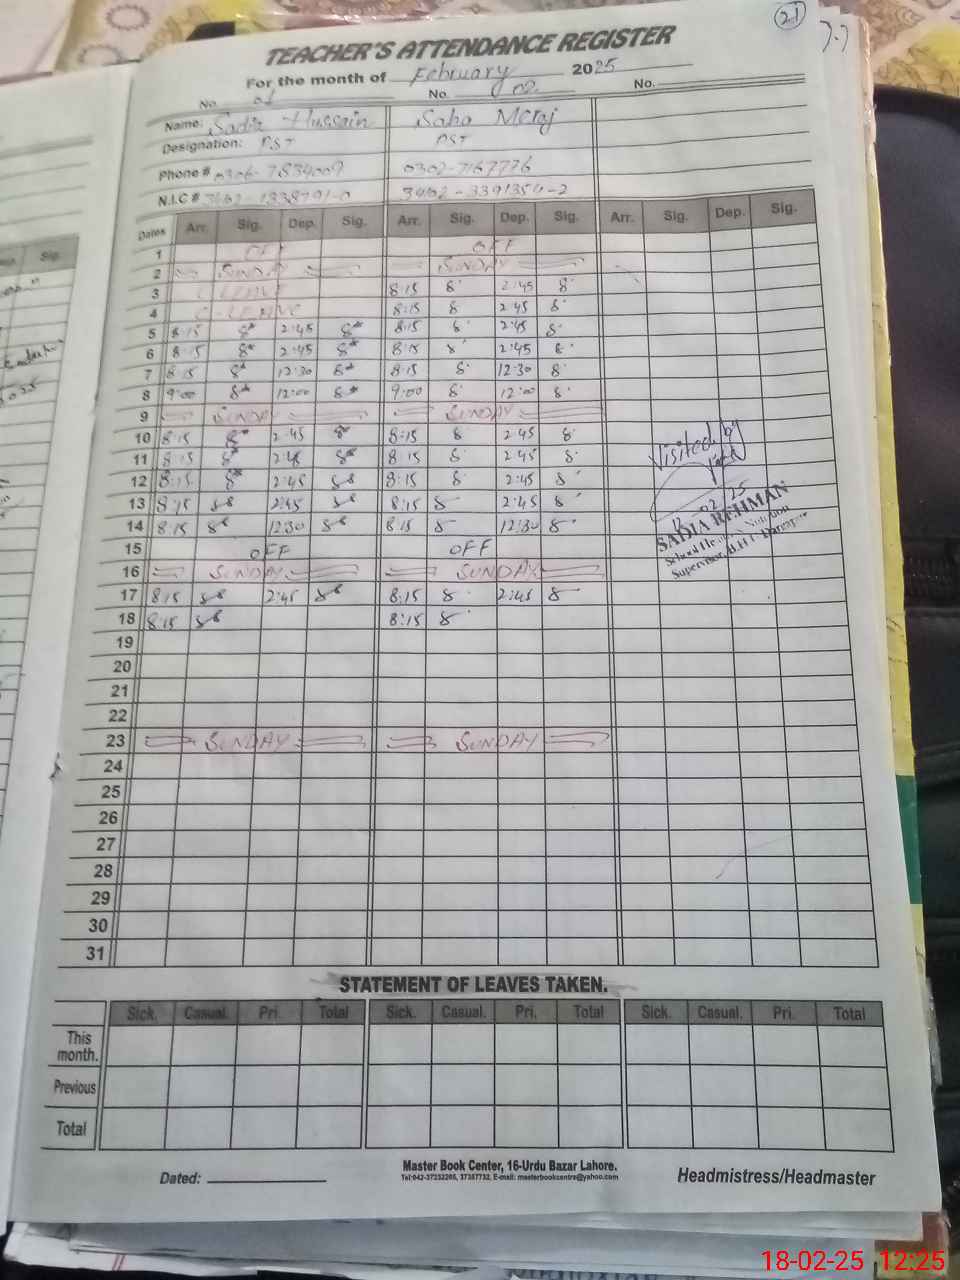 21
TEACHER'S ATTENDANCE REGISTER
For the month of February 2025
No. 01 No. 02 No.
Name: Sadia Hussain Saba Meraj
Designation: PST PST
Phone # 0306-7834009 0302-7167776
N.I.C # 3402-3391354-2
Dates Arr. Sig. Dep. Sig. Arr. Sig. Dep. Sig. Arr. Sig. Dep. Sig.
1 OFF OFF
2 SUNDAY SUNDAY
3 C LEAVE 8:15 8 2:45 8
4 C-LEAVE 8:15 8 2:45 8
5 8:15 2:45 8:15 8 2:45 8
6 8:15 2:45 8:15 8 2:45 8
7 8:15 12:30 8:15 8 12:30 8
8 9:00 12:00 9:00 8 12:00 8
9 SUNDAY SUNDAY
10 8:15 2:45 8:15 8 2:45 8
11 8:15 2:45 8:15 8 2:45 8
12 8:15 2:45 8:15 8 2:45 8
13 8:15 2:45 8:15 8 2:45 8
14 8:15 12:30 8:15 8 12:30 8
15 OFF OFF
16 SUNDAY SUNDAY
17 8:15 2:45 8:15 8 2:45 8
18 8:15 8:15 8
19
20
21
22
23 SUNDAY SUNDAY
24
25
26
27
28
29
30
31
Visited by
02/25
SADIA REHMAN
School Health Nutrition
Supervisor
STATEMENT OF LEAVES TAKEN.
Sick. Casual. Pri. Total Sick. Casual. Pri. Total Sick. Casual. Pri. Total
This month.
Previous
Total
Dated:
Master Book Center, 16-Urdu Bazar Lahore.
E-mail: masterbookcentre@yahoo.com
Headmistress/Headmaster
18-02-25 12:25